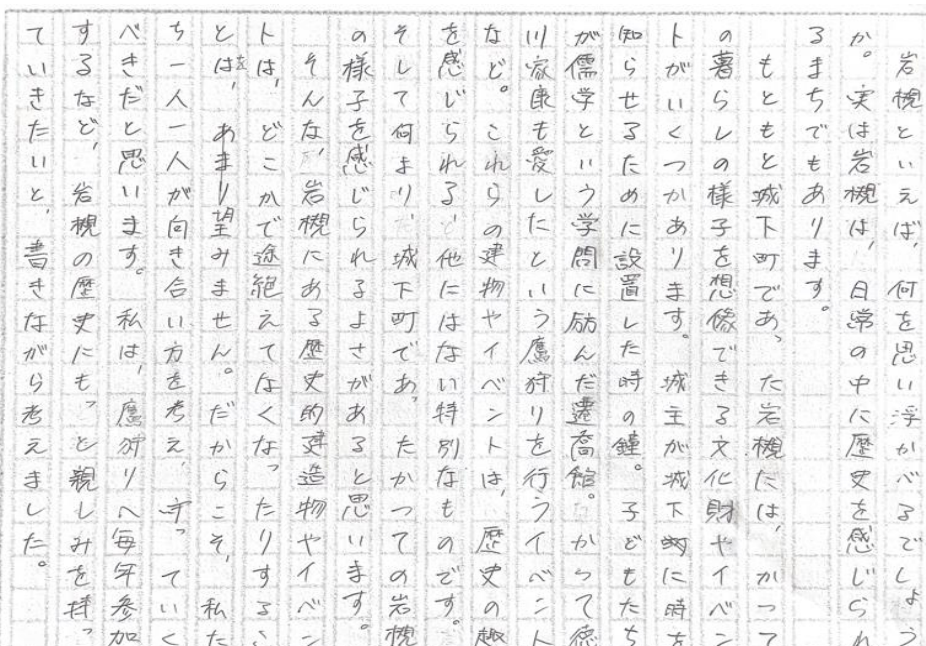 岩槻といえば、何を思い浮かべるでしょう
か。実は岩槻は、日常の中に歴史を感じられ
るまちでもあります。
もともと城下町であった岩槻には、かつて
の暮らしの様子を想像できる文化財やイベン
トがいくつかあります。城主が城下町に時を
知らせるために設置した時の鐘。子どもたち
が儒学という学問に励んだ遷喬館。かつて徳
川家康も愛したという鷹狩りを行うイベント
など。これらの建物やイベントは、歴史の趣
を感じられる、他にはない特別なものです。
そして何より、城下町であったかつての岩槻
の様子を感じられるよさがあると思います。
そんな、岩槻にある歴史的建造物やイベン
トは、どこかで途絶えてなくなったりするこ
とは、あまり望みません。だからこそ、私た
を
ち一人一人が向き合い方を考え、守っていく
べきだと思います。私は、鷹狩りへ毎年参加
するなど、岩槻の歴史にもっと親しみを持っ
ていきたいと、書きながら考えました。